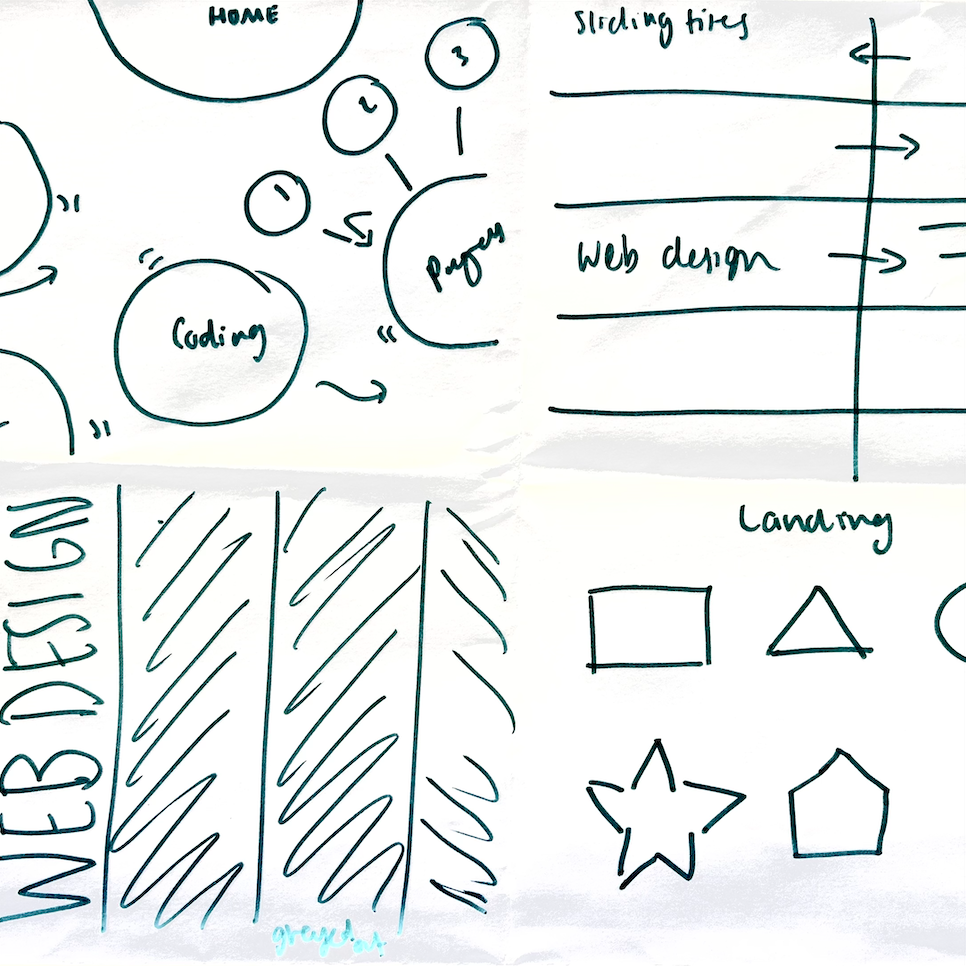 HOME
3
2
1
Coding
sliding tires
Web design
WEB DESIGN
greyed out
Landing